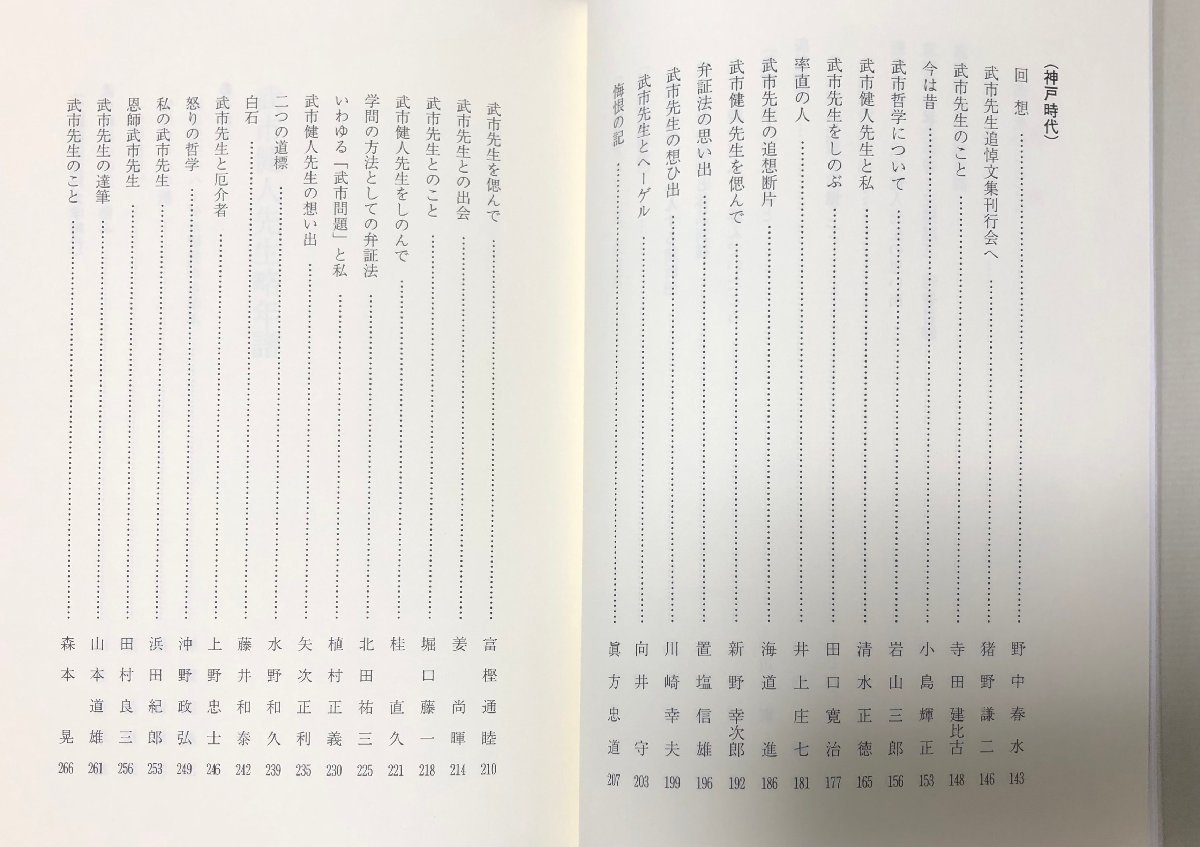 (神戸時代)
回想……野中春水 143
武市先生追悼文集刊行会へ……猪野謙二 146
武市先生のこと……寺田建比古 148
今は昔……小島輝正 153
武市哲学について……岩山三郎 156
武市健人先生と私……清水正徳 165
武市先生をしのぶ……田口寛治 177
率直の人……井上庄七 181
武市先生の追想断片……海道進 186
武市健人先生を偲んで……新野幸次郎 192
弁証法の思い出……置塩信雄 196
武市先生の想ひ出……川崎幸夫 199
武市先生とヘーゲル……向井守 203
悔恨の記……眞方忠道 207
武市先生を偲んで……富樫通睦 210
武市先生との出会……姜尚暉 214
武市先生とのこと……堀口藤一 218
武市健人先生をしのんで……桂直久 221
学問の方法としての弁証法……北田祐三 225
いわゆる「武市問題」と私……植村正義 230
武市健人先生の想い出……矢次正利 235
二つの道標……水野和久 239
白石……藤井和泰 242
武市先生と厄介者……上野忠士 246
怒りの哲学……沖野政弘 249
私の武市先生……浜田紀郎 253
恩師武市先生……田村良三 256
武市先生の達筆……山本道雄 261
武市先生のこと……森本晃 266